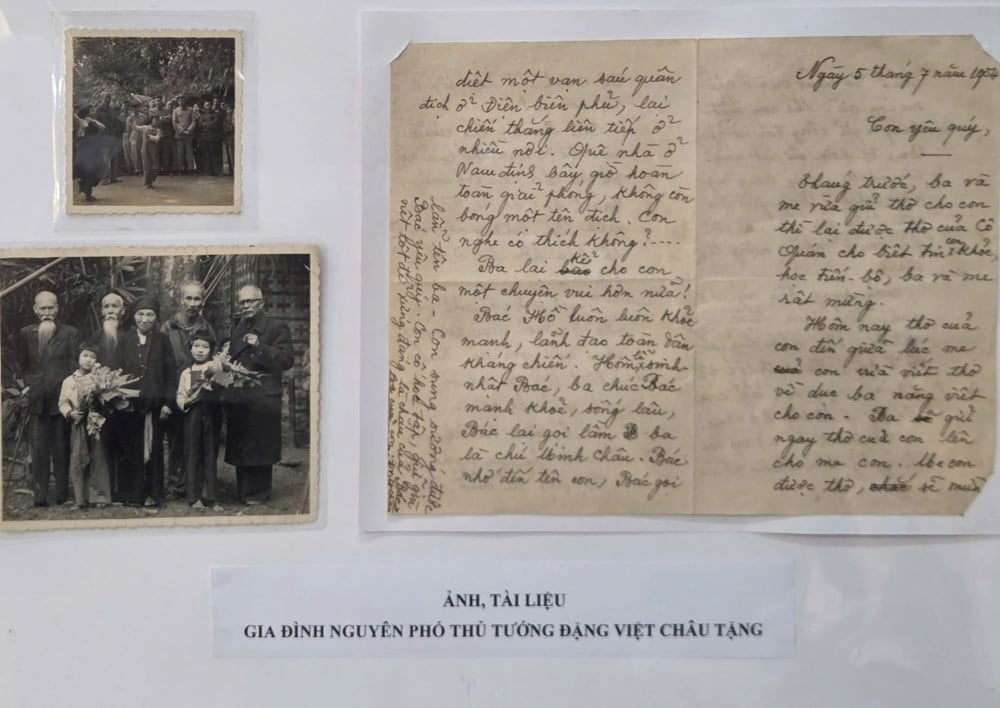 diệt một vạn sáu quân
địch ở Điên biên phủ, lại
chiến thắng liên tiếp ở
nhiều nơi. Quê nhà ở
Nam định bây giờ hoàn
toàn giải phóng, không còn
bong một tên địch. Con
nghe có thích không?....
Ba lại kể cho con,
một chuyện vui hơn nữa!
Bác Hồ luôn luôn khỏe
mạnh, lãnh đạo toàn dân
kháng chiến. Hôm lễ sinh-
nhật Bác, ba chúc Bác
mạnh khoẻ, sống lâu,
Bác lại gọi lầm ba
là chú Minh Châu. Bác
nhớ đến tên con, Bác gọi
lẫn tên ba – Con sung sướng được
Bác yêu quý – Con cố học tập, giữ gìn
nết tốt để xứng đáng là cháu của Bác
Ba của con.
Ngày 5 tháng 7 năm 1954
Con yêu quý,
Tháng trước, ba và
mẹ vừa gửi thơ cho con
thì lại được thơ của Cô
Quán cho biết tin con khỏe,
học tiến-bộ, ba và mẹ
rất mừng.
Hôm nay thơ của
con đến giữa lúc mẹ
con vừa viết thơ
về dục ba năng viết
cho con. Ba gửi
ngay thơ của con lên
cho mẹ con. Mẹ con
được thơ, sẽ mừng
ẢNH, TÀI LIỆU
GIA ĐÌNH NGUYÊN PHÓ THỦ TƯỚNG ĐẶNG VIỆT CHÂU TẶNG